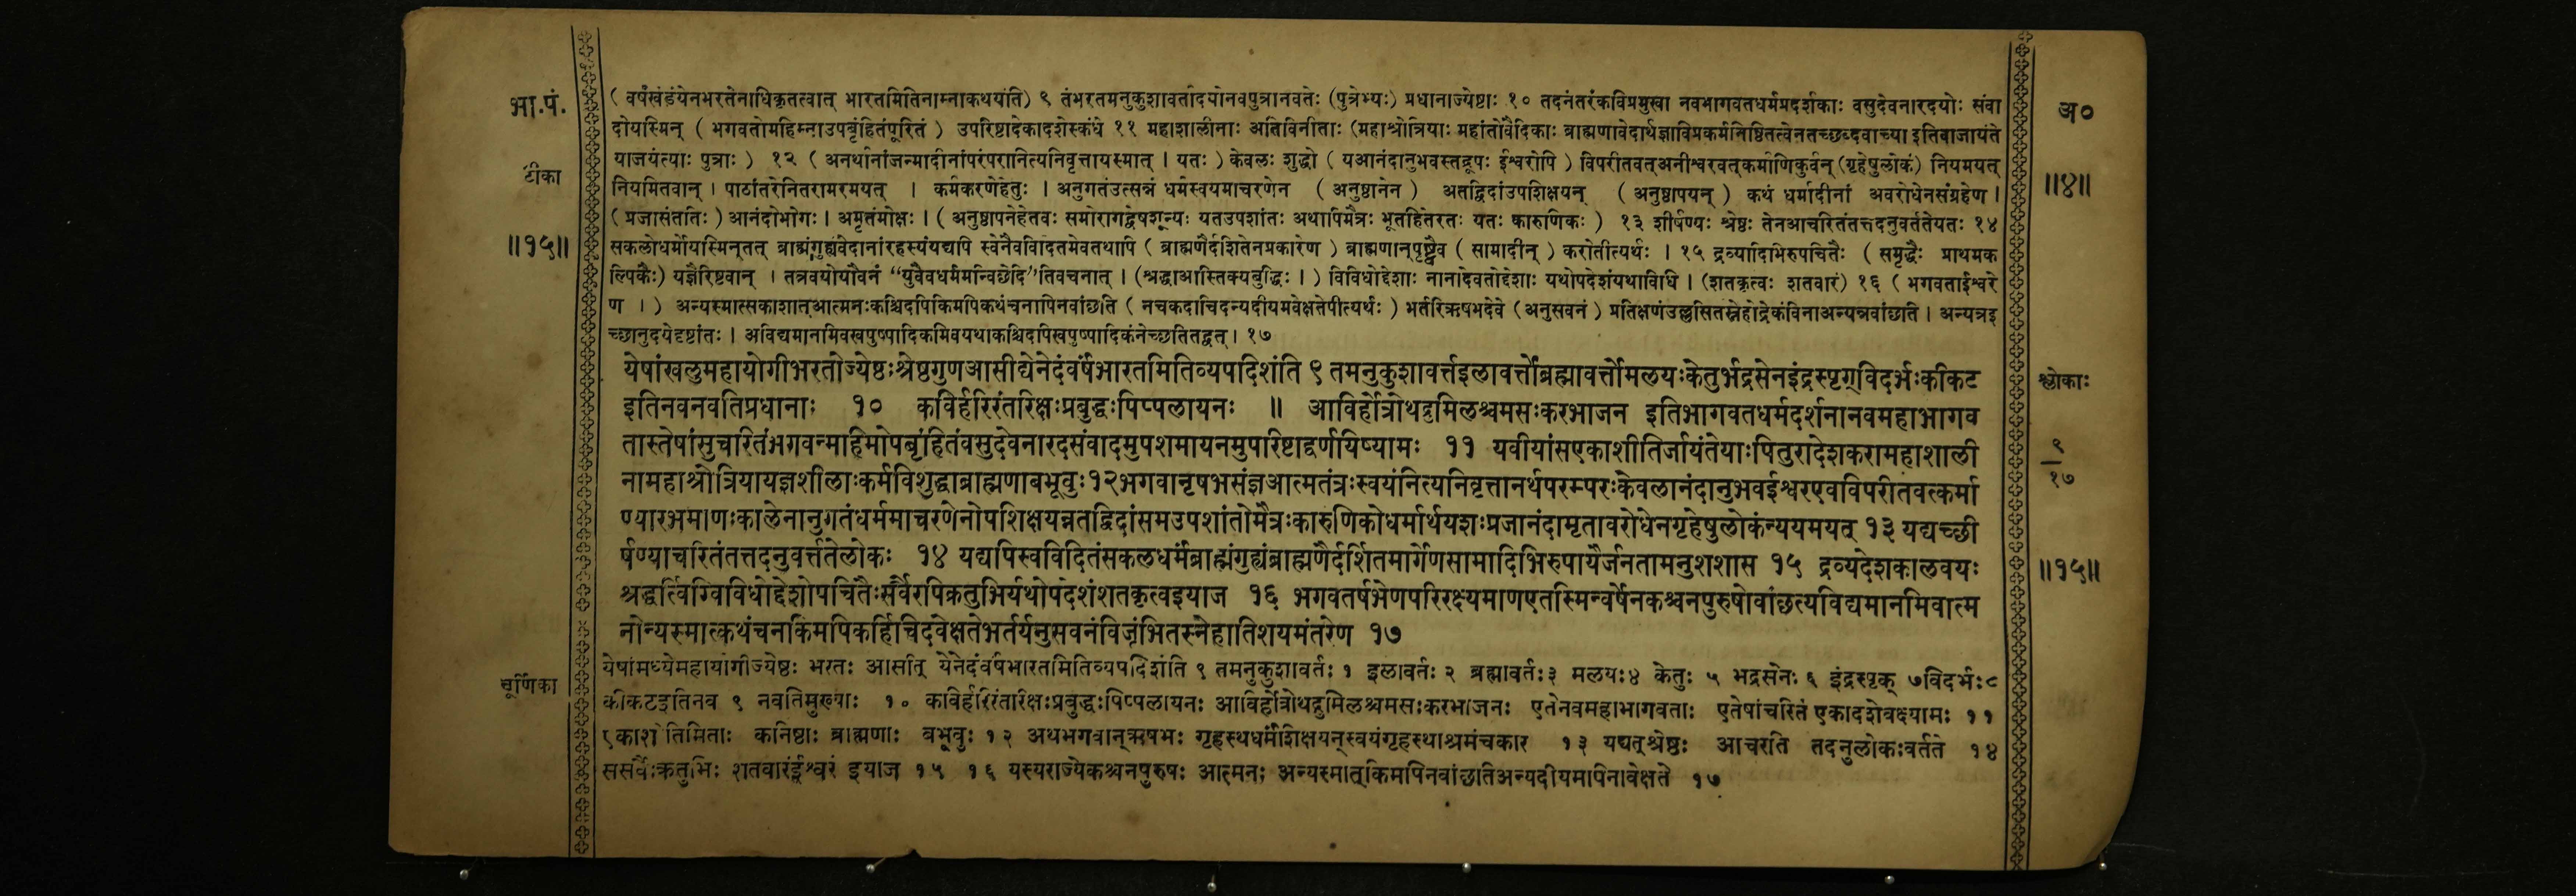 भा.पं.
टीका
॥१५॥
(वर्षंखंडंयेनभरतेनाधिकृतत्वात् भारतमितिनाम्नाकथयंति) ९ तंभरतमनुकुशावर्तादयोनवपुत्रानवतेः (पुत्रेभ्यः) प्रधानाज्येष्ठाः १० तदनंतरंकविप्रमुखा नवभागवतधर्मप्रदर्शकाः वसुदेवनारदयोः संवा
दोयस्मिन् ( भगवतोमहिम्नाउपबृंहितंपूरितं ) उपरिष्टादेकादशेस्कंधे ११ महाशालीनाः अतिविनीताः (महाश्रोत्रियाः महांतोवैदिकाः ब्राह्मणावेदार्थज्ञाविप्रकर्मनिष्ठितत्वेनतच्छब्दवाच्या इतिवाजायंते
याजयंत्याः पुत्राः ) १२ ( अनर्थानांजन्मादीनांपरंपरानित्यनिवृत्तायस्मात् । यतः ) केवलः शुद्धो ( यआनंदानुभवस्तद्रूपः ईश्वरोपि ) विपरीतवत्अनीश्वरवत्कर्माणिकुर्वन् (गृहेषुलोकं) नियमयत्
नियमितवान् । पाठांतरेनितरामरमयत् । कर्मकरणेहेतुः । अनुगतंउत्सन्नं धर्मस्वयमाचरणेन ( अनुष्ठानेन ) अतद्विदांउपशिक्षयन् ( अनुष्ठापयन् ) कथं धर्मादीनां अवरोधेनसंग्रहेण ।
( प्रजासंततिः ) आनंदोभोगः । अमृतंमोक्षः । ( अनुष्ठापनेहेतवः समोरागद्वेषशून्यः यतउपशांतः अथापिमैत्रः भूतहितेरतः यतः कारुणिकः ) १३ शीर्षण्यः श्रेष्ठः तेनआचरितंतत्तदनुवर्ततेयतः १४
सकलोधर्मोयस्मिन्तत् ब्राह्मंगुह्यंवेदानांरहस्यंयद्यपि स्वेनैवविदितमेवतथापि ( ब्राह्मणैर्दर्शितेनप्रकारेण ) ब्राह्मणान्पृष्ट्वैव ( सामादीन् ) करोतीत्यर्थः । १५ द्रव्यादिभिरुपचितैः ( समृद्धैः प्राथमक
ल्पिकैः) यज्ञैरिष्टवान् । तत्रवयोयौवनं “युवैवधर्ममन्विछेदि”तिवचनात् । (श्रद्धाआस्तिक्यबुद्धिः । ) विविधोद्देशाः नानादेवतोद्देशाः यथोपदेशंयथाविधि । (शतकृत्वः शतवारं) १६ ( भगवताईश्वरे
ण । ) अन्यस्मात्सकाशात्आत्मनःकश्चिदपिकिमपिकथंचनापिनवांछति ( नचकदाचिदन्यदीयमवेक्षतेपीत्यर्थः ) भर्तरिऋषभदेवे (अनुसवनं ) प्रतिक्षणंउल्लसितस्नेहोद्रेकंविनाअन्यन्नवांछति । अन्यत्रइ
च्छानुदयेदृष्टांतः । अविद्यमानमिवखपुष्पादिकमिवयथाकश्चिदपिखपुष्पादिकंनेच्छतितद्वत् । १७
येषांखलुमहायोगीभरतोज्येष्ठःश्रेष्ठगुणआसीद्येनेदंवर्षंभारतमितिव्यपदिशंति ९ तमनुकुशावर्त्तइलावर्त्तोब्रह्मावर्त्तोमलयःकेतुर्भद्रसेनइंद्रस्पृग्विदर्भःकीकट
इतिनवनवतिप्रधानाः १० कविर्हरिरंतरिक्षःप्रबुद्धःपिप्पलायनः ॥ आविर्होत्रोथद्रुमिलश्चमसःकरभाजन इतिभागवतधर्मदर्शनानवमहाभागव
तास्तेषांसुचरितंभगवन्महिमोपबृंहितंवसुदेवनारदसंवादमुपशमायनमुपरिष्टाद्वर्णयिष्यामः ११ यवीयांसएकाशीतिर्जायंतेयाःपितुरादेशकरामहाशाली
नामहाश्रोत्रियायज्ञशीलाःकर्मविशुद्धाब्राह्मणाबभूवुः१२भगवानृषभसंज्ञआत्मतंत्रःस्वयंनित्यनिवृत्तानर्थपरम्परःकेवलानंदानुभवईश्वरएवविपरीतवत्कर्मा
ण्यारभमाणःकालेनानुगतंधर्ममाचरणेनोपशिक्षयन्नतद्विदांसमउपशांतोमैत्रःकारुणिकोधर्मार्थयशःप्रजानंदामृतावरोधेनगृहेषुलोकंन्ययमयत् १३ यद्यच्छी
र्षण्याचरितंतत्तदनुवर्त्ततेलोकः १४ यद्यपिस्वविदितंसकलधर्मंब्राह्मंगुह्यंब्राह्मणैर्दर्शितमार्गेणसामादिभिरुपायैर्जनतामनुशशास १५ द्रव्यदेशकालवयः
श्रद्धर्त्विग्विविधोद्देशोपचितैःसर्वैरपिक्रतुभिर्यथोपदेशंशतकृत्वइयाज १६ भगवतर्षभेणपरिरक्ष्यमाणएतस्मिन्वर्षेनकश्चनपुरुषोवांछत्यविद्यमानमिवात्म
नोन्यस्मात्कथंचनकिमपिकर्हिचिदवेक्षतेभर्तर्यनुसवनंविजृंभितस्नेहातिशयमंतरेण १७
चूर्णिका
येषांमध्येमहायोगीज्येष्ठः भरतः आसीत् येनेदंवर्षंभारतमितिव्यपदिशंति ९ तमनुकुशावर्तः १ इलावर्तः २ ब्रह्मावर्तः३ मलयः४ केतुः ५ भद्रसेनः ६ इंद्रस्पृक् ७विदर्भः८
कीकटइतिनव ९ नवतिमुख्याः १० कविर्हरिरंतरिक्षःप्रबुद्धःपिप्पलायनः आविर्होत्रोथद्रुमिलश्चमसःकरभाजनः एतेनवमहाभागवताः एतेषांचरितं एकादशेवक्ष्यामः ११
एकाशीतिमिताः कनिष्ठाः ब्राह्मणाः बभूवुः १२ अथभगवान्ऋषभः गृहस्थधर्मंशिक्षयन्स्वयंगृहस्थाश्रमंचकार १३ यद्यत्श्रेष्ठः आचरति तदनुलोकःवर्तते १४
ससर्वैःक्रतुभिः शतवारंईश्वरं इयाज १५ १६ यस्यराज्येकश्चनपुरुषः आत्मनः अन्यस्मात्किमपिनवांछतिअन्यदीयमपिनावेक्षते १७
अ०
॥४॥
श्लोकाः
९
१७
॥१५॥